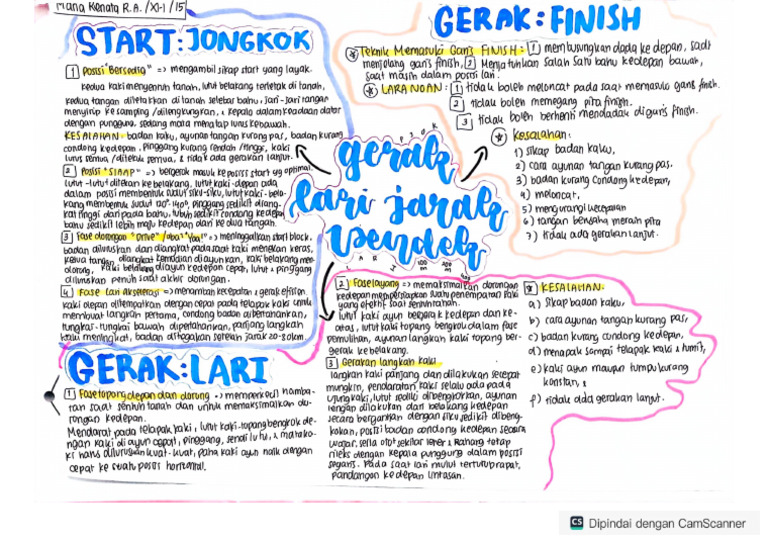 Maria Renata R.A. /XI-1 /15
START: JONGKOK
1 Posisi "Bersedia" => mengambil sikap start yang layak.
kedua kaki menyentuh tanah, lutut belakang terletak di tanah,
kedua tangan diletakkan di tanah selebar bahu, jari-jari tangan
menyirip ke samping /dilengkungkan, & kepala dalam keadaan datar
dengan punggung, sedang mata menatap lurus kebawah.
KESALAHAN: badan kaku, ayunan tangan kurang pas, badan kurang
condong kedepan, pinggang kurang rendah /tinggi, kaki
lurus semua /ditekuk semua, & tidak ada gerakan lanjut.
2 Posisi "SIAAP" => bergerak masuk ke posisi start yg optimal.
lutut-lutut ditekan ke belakang, lutut kaki-depan ada
dalam posisi membentuk sudut siku-siku, lutut kaki-bela-
kang membentuk sudut 120°-140°, pinggang sedikit diang-
kat tinggi dari pada bahu, tubuh sedikit condong kedepan
bahu sedikit lebih maju kedepan dari kedua tangan.
3 Fase dorongan "Drive" /aba" "Yaa!" => meninggalkan start block.
badan diluruskan dan diangkat pada saat kaki menekan keras,
kedua tangan diangkat kemudian diayunkan, kaki belakang men-
dorong, kaki belakang diayun kedepan cepat, lutut & pinggang
diluruskan penuh saat akhir dorongan.
4 Fase lari akselerasi => menambah kecepatan & gerak efisien
kaki depan ditempatkan dengan cepat pada telapak kaki untuk
membuat langkah pertama, condong badan dipertahankan,
tungkai-tungkai bawah dipertahankan, panjang langkah
kaki meningkat, badan ditegakan setelah jarak 20-30km.
GERAK: FINISH
* Teknik Memasuki Garis FINISH: 1 membusungkan dada ke depan, saat
menjelang garis finish, 2 Menjatuhkan salah satu bahu kedepan bawah,
saat masih dalam posisi lari.
* LARANGAN: 1 tidak boleh meloncat pada saat memasuki garis finish.
2 tidak boleh memegang pita finish.
3 tidak boleh berhenti mendadak digaris finish.
* Kesalahan:
1) sikap badan kaku,
2) cara ayunan tangan kurang pas,
3) badan kurang condong kedepan,
4) meloncat,
5) mengurangi kecepatan
6) tangan berusaha meraih pita
7) tidak ada gerakan lanjut.
gerak
lari jarak
pendek
LARI 100 m 200 m 400 m
GERAK: LARI
1 Fase topang depan dan dorong => memperkecil hamba-
tan saat sentuh tanah dan untuk memaksimalkan do-
rongan kedepan.
Mendarat pada telapak kaki, lutut kaki-topang bengkok de-
ngan kaki di ayun cepat, pinggang, sendi lutu, & matako-
ki harus diluruskan kuat-kuat, paha kaki ayun naik dengan
cepat ke suatu posisi horizontal.
2 Fase layang => memaksimalkan dorongan
kedepan mempersiapkan suatu penempatan kaki
yang efektif saat sentuh tanah.
lutut kaki ayun bergerak kedepan dan ke-
atas, lutut kaki topang bengkok dalam fase
pemulihan, ayunan langkah kaki topang ber-
gerak ke belakang.
3 Gerakan langkah kaki
langkah kaki panjang dan dilakukan secepat
mungkin, pendaratan kaki selalu ada pada
ujung kaki, lutut sedikit dibengkokkan, ayunan
lengan dilakukan dari belakang kedepan
secara bergantian dengan siku sedikit dibeng-
kokan, posisi badan condong kedepan secara
wajar, serta otot sekitar leher & rahang tetap
rileks dengan kepala punggung dalam posisi
segaris. Pada saat lari mulut tertutup rapat,
pandangan kedepan lintasan.
* KESALAHAN:
a) sikap badan kaku,
b) cara ayunan tangan kurang pas,
c) badan kurang condong kedepan,
d) menapak sampai telapak kaki & tumit,
e) kaki ayun maupun tumpu kurang
konstan, &
f) tidak ada gerakan lanjut.
CS Dipindai dengan CamScanner